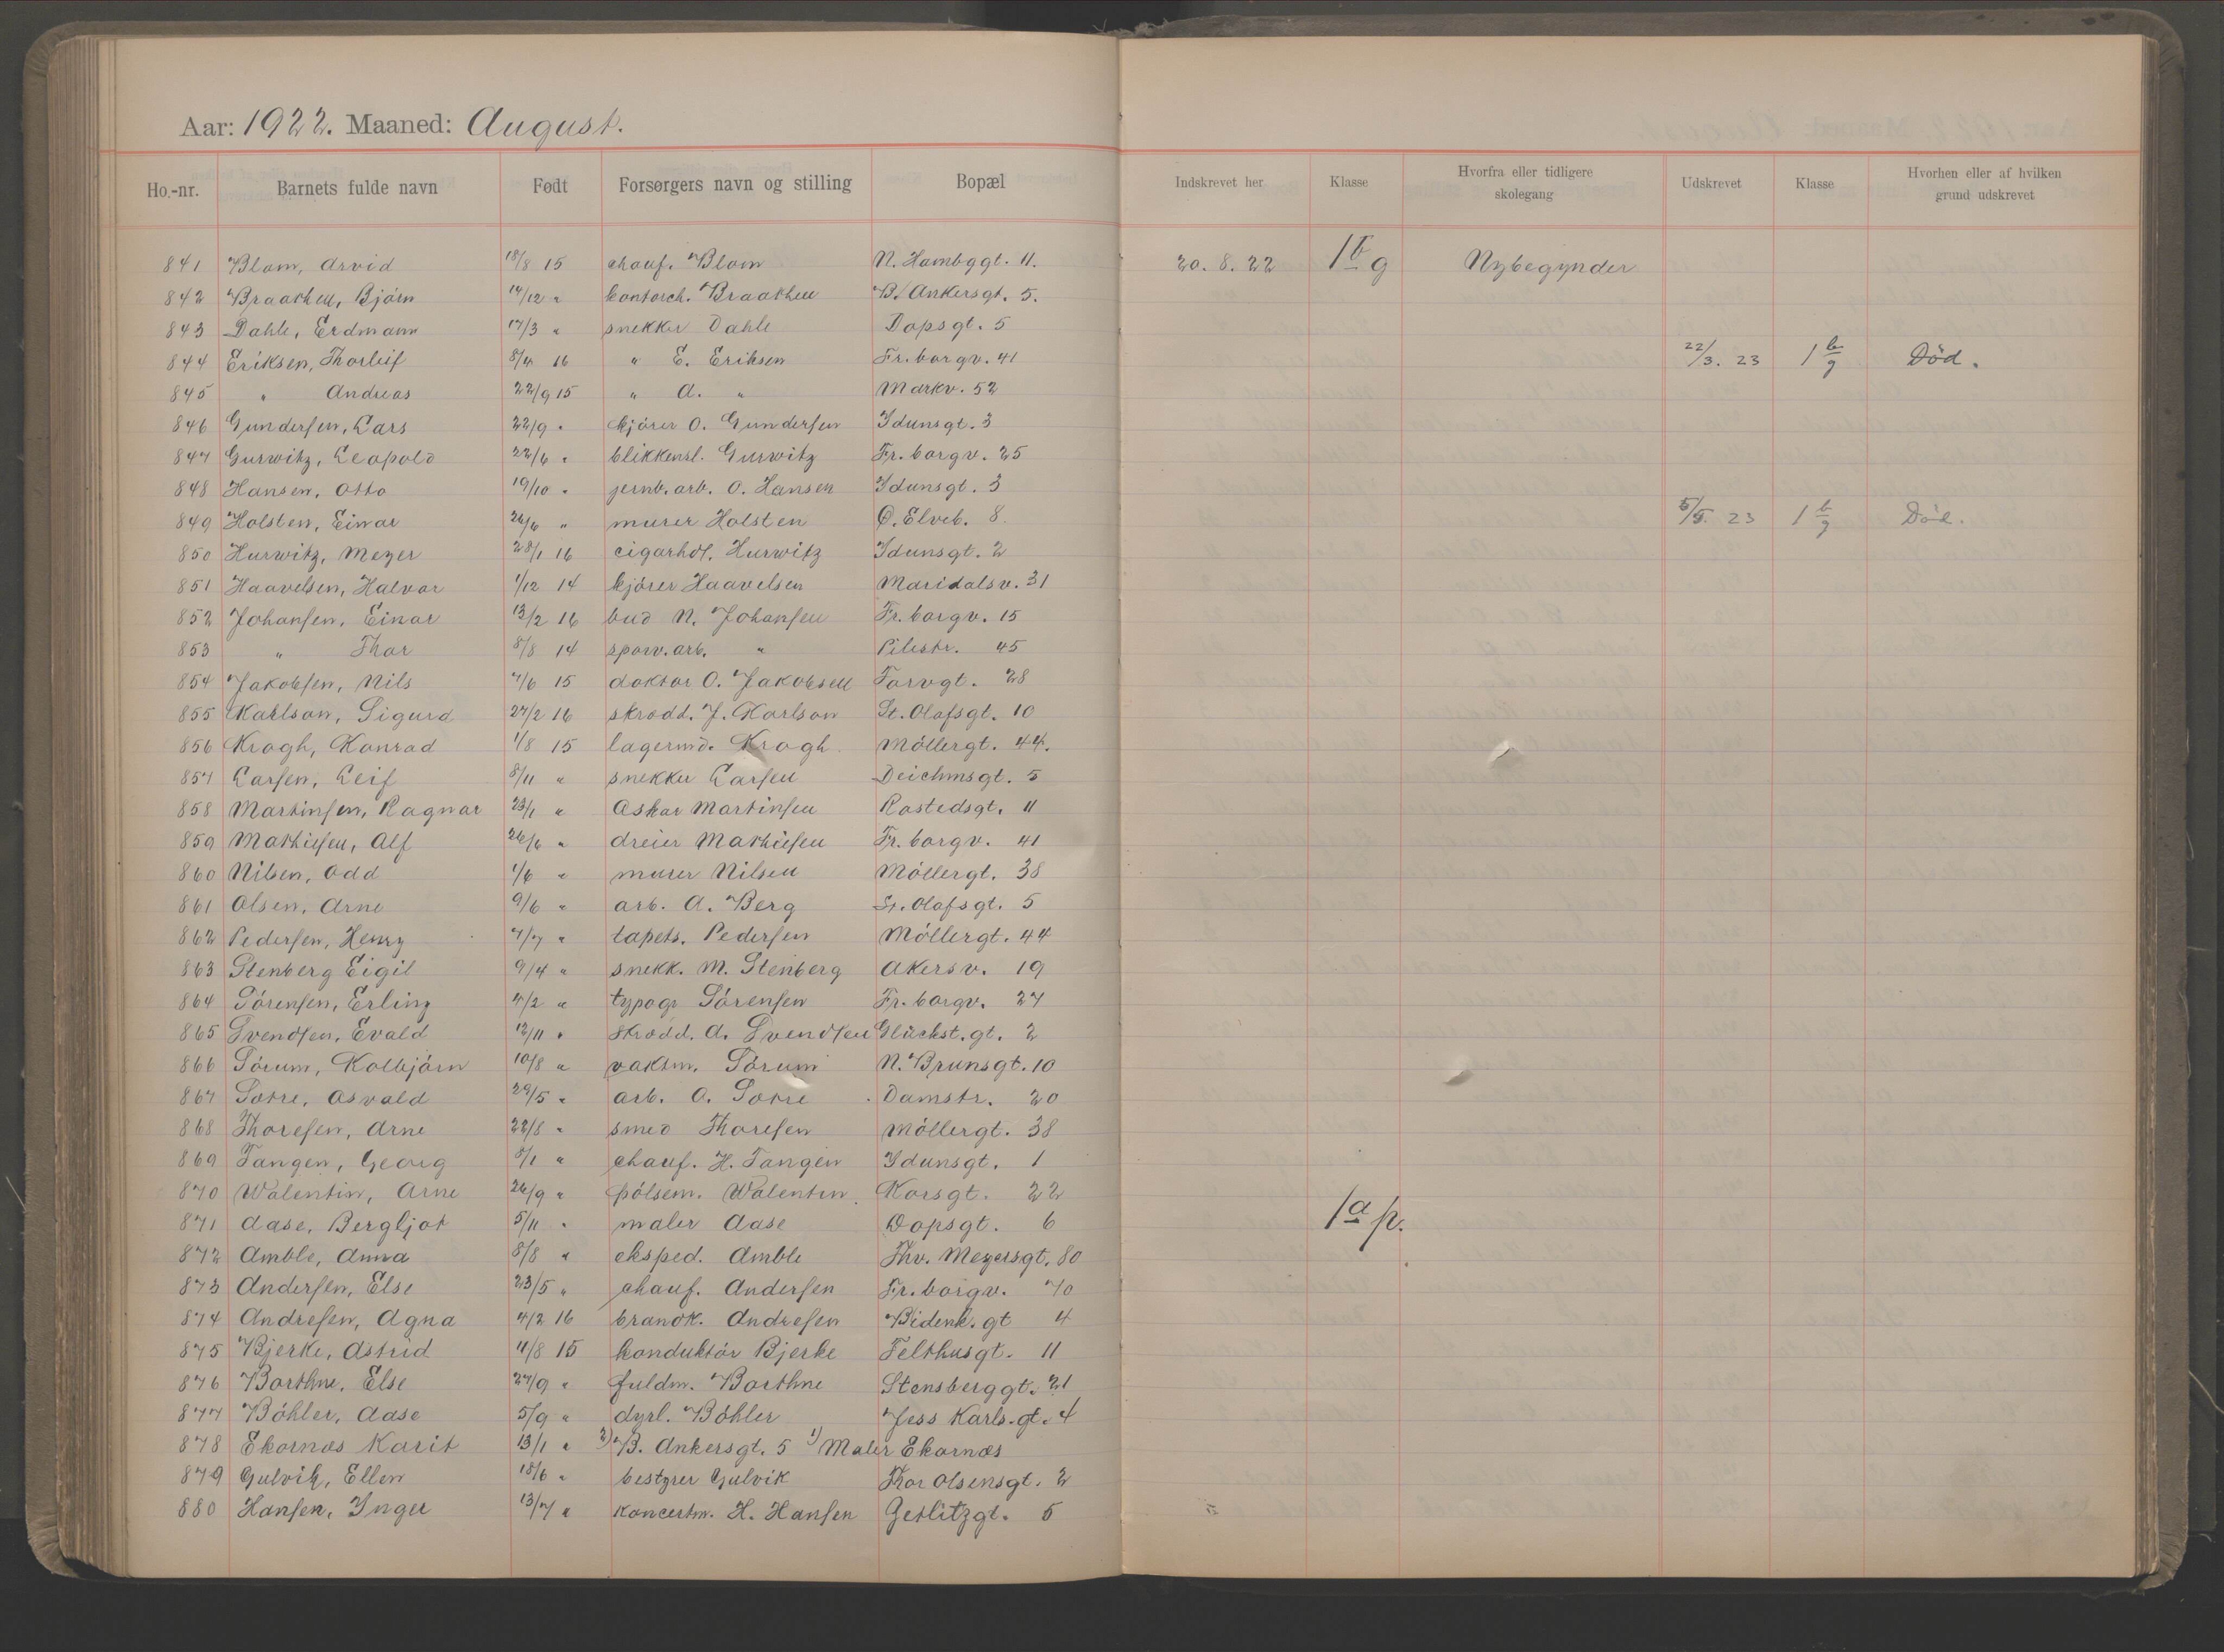 Aar: 1922. Maaned: August.
Ho.-nr. Barnets fulde navn Født Forsørgers navn og stilling Bopæl Indskrevet her Klasse Hvorfra eller tidligere skolegang Udskrevet Klasse Hvorhen eller af hvilken grund udskrevet
841 Blom, Arvid 18/8 15 chauf. Blom N. Hambggt. 11. 20. 8. 22 1 b/g Nybegynder
842 Braathen, Björn 14/12 " kontorch. Braathen B. Ankersgt. 5.
843 Dahle, Erdmann 17/3 " snekker Dahle Dopsgt. 5
844 Eriksen, Thorleif 8/4 16 " E. Eriksen Fr.borgv. 41 22/3. 23 1 b/g Död.
845 " Andreas 22/9 15 " A. " Markv. 52
846 Gundersen, Lars 22/9 " kjörer O. Gundersen Idunsgt. 3
847 Gurwitz, Leopold 22/6 " blikkensl. Gurwitz Fr.borgv. 25
848 Hansen, Otto 19/10 " jernb.arb. O. Hansen Idunsgt. 3
849 Holsten, Einar 26/6 " murer Holsten Ö. Elveb. 8. 5/5. 23 1 b/g Död.
850 Hurwitz, Meyer 28/1 16 cigarhdl. Hurwitz Idunsgt. 2
851 Haavelsen, Halvor 1/12 14 kjörer Haavelsen Maridalsv. 31
852 Johansen, Einar 13/2 16 bud N. Johansen Fr.borgv. 15
853 " Thor 8/8 14 sporv.arb. " Pilestr. 45
854 Jakobsen, Nils 7/6 15 doktor O. Jakobsen Torvgt. 28
855 Karlson, Sigurd 27/2 16 skrædd. J. Karlson St. Olafsgt. 10
856 Krogh, Konrad 1/8 15 lagermd. Krogh. Möllergt. 44.
857 Larsen, Leif 8/11 " snekker Larsen Deichmsgt. 5
858 Martinsen, Ragnar 23/1 " Oskar Martinsen Rostedsgt. 11
859 Mathiesen, Alf 26/6 " dreier Mathiesen Fr.borgv. 41
860 Nilsen, Odd 1/6 " murer Nilsen Möllergt. 38
861 Olsen, Arne 9/6 " arb. A. Berg St. Olafsgt. 5
862 Pedersen, Henry 7/7 " tapets. Pedersen Möllergt. 44
863 Stenberg Eigil 9/4 " snekk. M. Stenberg Akersv. 19
864 Sörensen, Erling 4/2 " typogr Sörensen Fr.borgv. 27
865 Svendsen, Evald 12/11 " skrædd. A. Svendsen Glückst.gt. 2
866 Sörum, Kolbjörn 10/8 " vaktm. Sörum N. Brunsgt. 10
867 Sætre, Osvald 29/5 " arb. O. Sætre Damstr. 20
868 Thoresen, Arne 22/8 " smed Thoresen Möllergt. 38
869 Tangen, Georg 8/1 " chauf. H. Tangen Idunsgt. 1
870 Walentin, Arne 26/9 " pölsem. Walentin. Korsgt. 22
871 Aase, Bergljot 5/11 " maler Aase Dopsgt. 6 1 a p.
872 Amble, Anna 8/8 " eksped. Amble Thv. Meyersgt. 80
873 Andersen, Else 23/5 " chauf. Andersen Fr.borgv. 70
874 Andresen, Agna 4/2 16 brandk. Andresen Bidenk.gt 4
875 Bjerke, Astrid 11/8 15 konduktör Bjerke Felthusgt. 11
876 Borthne, Else 27/9 " fuldm. Borthne Stensberggt. 21
877 Böhler, Aase 5/9 " dyrl. Böhler Jess Karls.gt. 4
878 Ekornæs Karit 13/1 " 2) B. Ankersgt. 5 1) Maler Ekornæs
879 Gulvik, Ellen 18/6 " bestyrer Gulvik Thor Olsensgt. 2
880 Hansen, Inger 13/7 " koncertm. H. Hansen Getlitzgt. 5